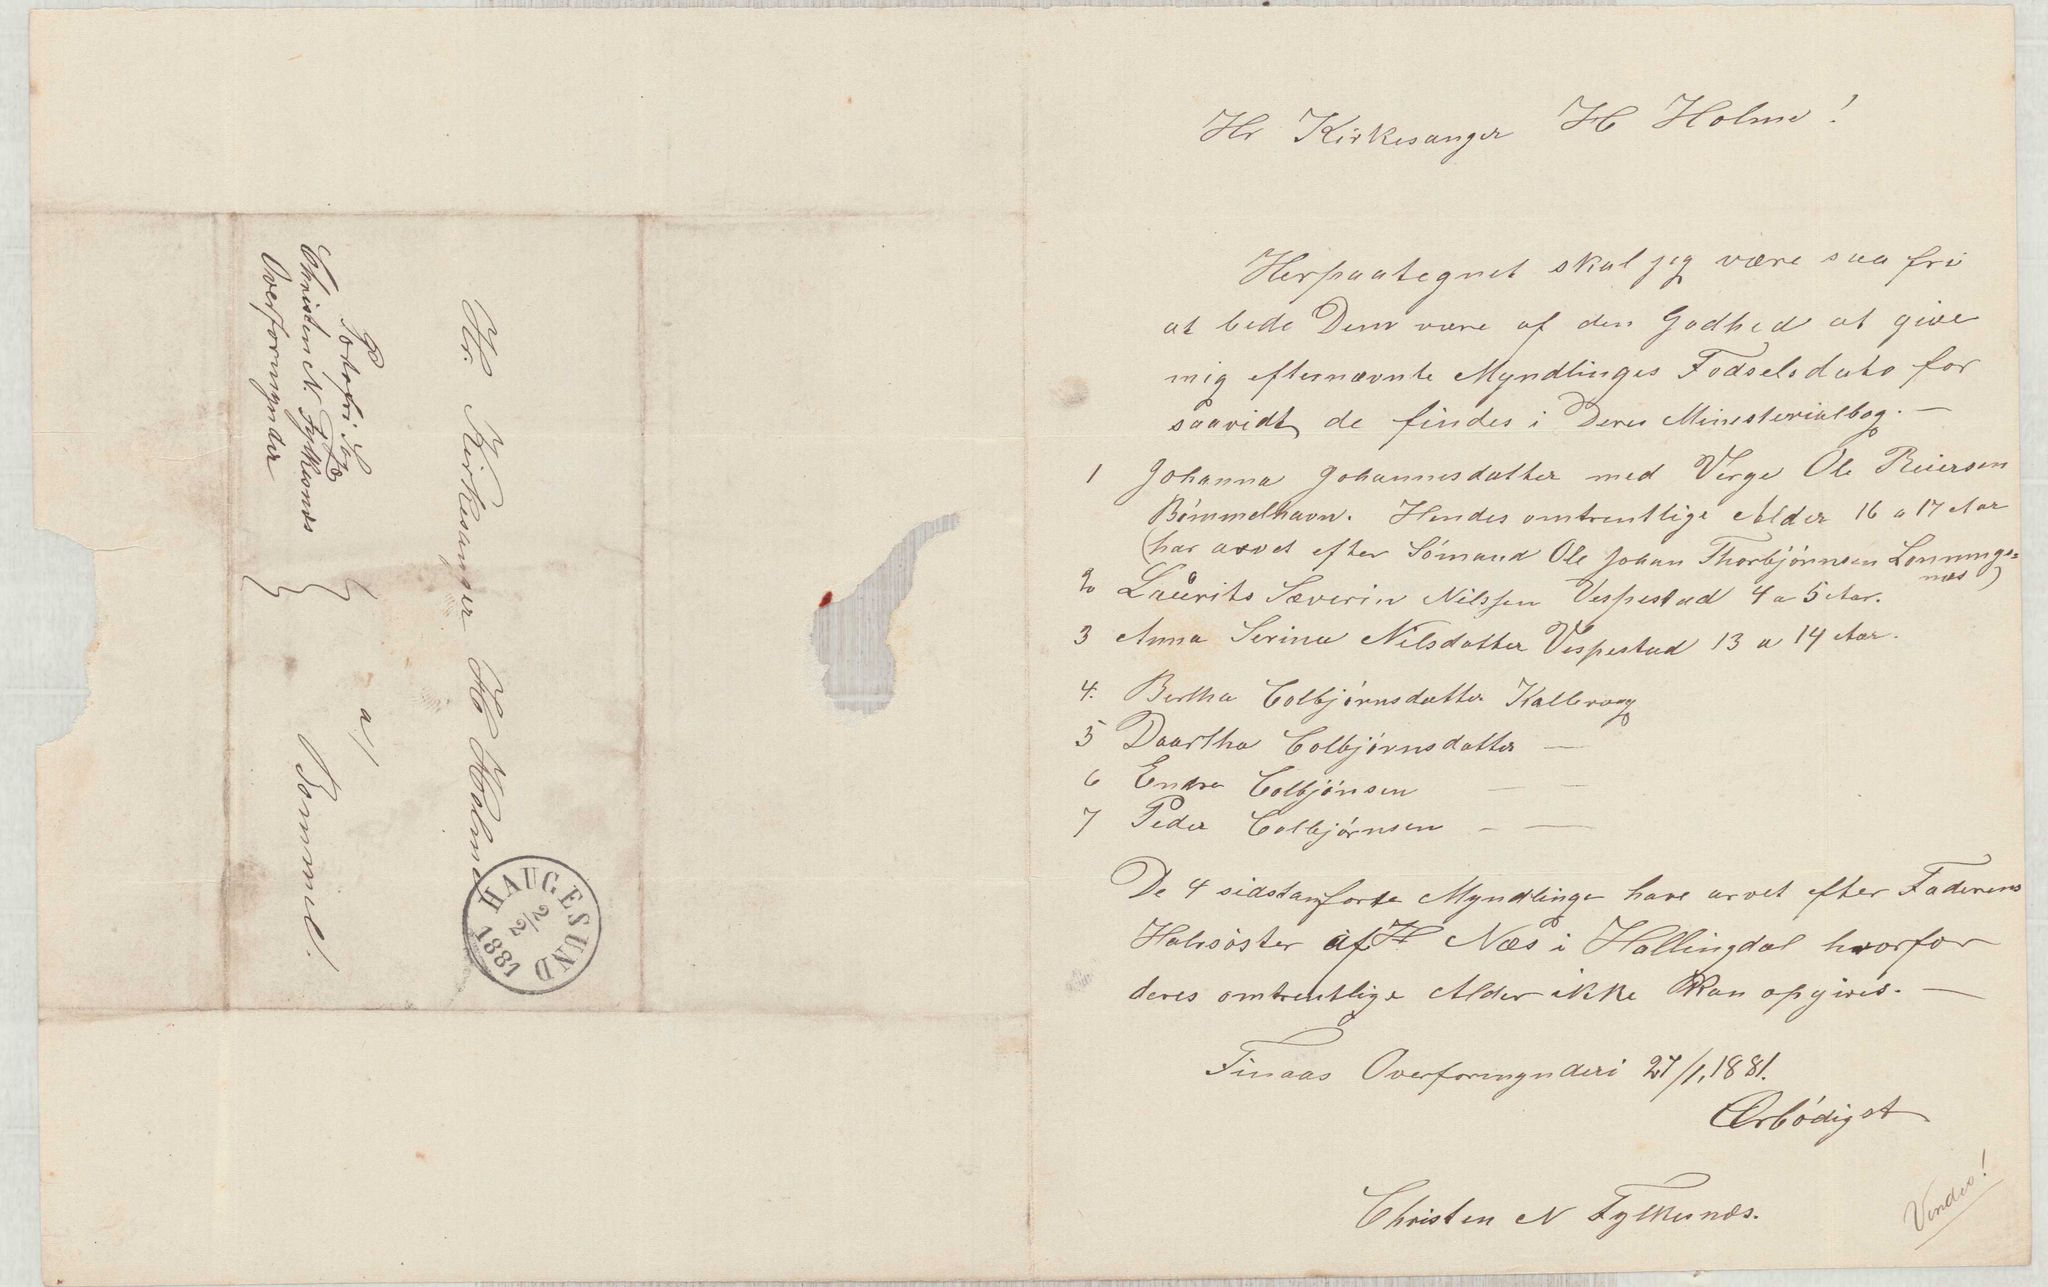 Hr Kirkesanger H Holme!
Herpaategnet skal jeg være saa fri
at bede Dem være af den Godhed at give
mig efternævnte Myndlinges Fodselsdato for
saavidt de findes i Deres Ministerialbog. —
1 Johanna Johannesdatter med Verge Ole Reiersen
Bömmelhavn. Hendes omtrentlige Alder 16 a 17 Aar
(har arvet efter Sömand Ole Johan Thorbjörnsen Lonnings=
næs)
2 Laurits Sæverin Nilssen Vespestad 4 a 5 Aar.
3 Anna Serina Nilsdatter Vespestad 13 a 14 Aar.
4. Bertha Colbjörnsdatter Kallevaag
5 Daartha Colbjörnsdatter —
6 Endre Colbjönsen — —
7 Peder Colbjörnsen — —
De 4 sidstanforte Myndlinge have arvet efter Faderens
Halvsöster af H Næs i Hallingdal hvorfor
deres omtrentlige Alder ikke kan opgives. —
Finaas Overformynderi 27/1, 1881.
Ærbödigst
Christen N Fylkesnæs.
Vendes!
Hr. Kirkesanger H Holme
a/ Bommel.
Portofri Sag
Christen N. Fylkesnæs
Overformynder
HAUGESUND
2/2
1881